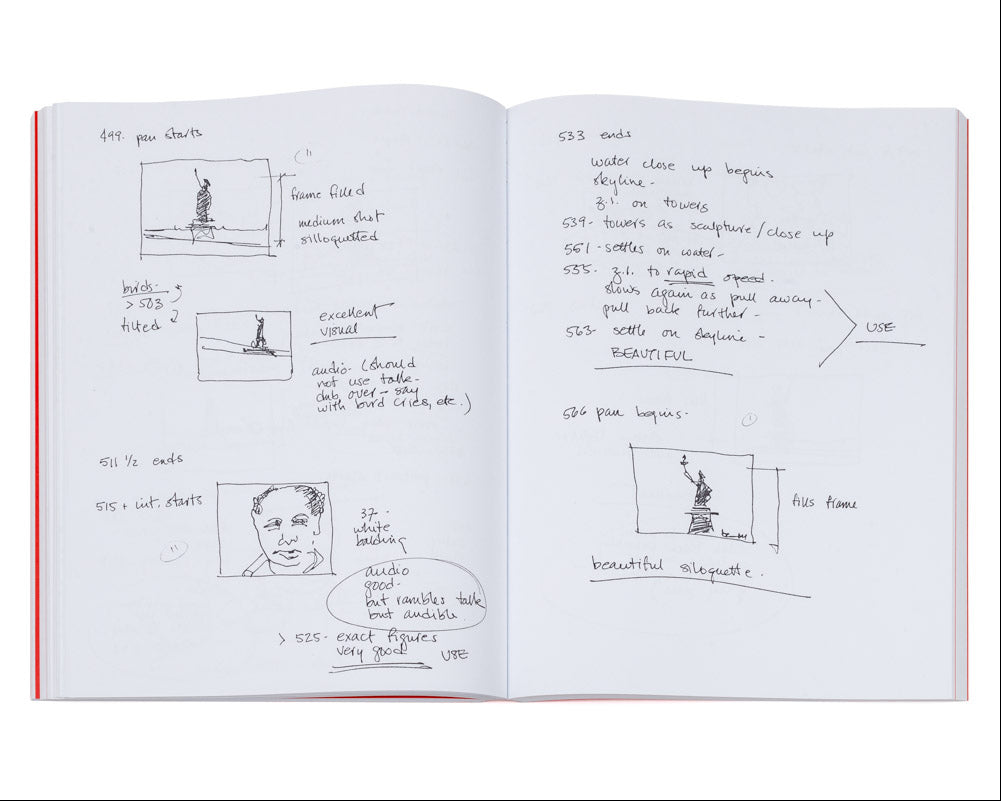 499. pan starts
frame filled
medium shot
silloquetted
birds-
> 503
tilted
excellent
visual
audio- (should
not use talk-
dub over - say
with bird cries, etc.)
511 1/2 ends
515 + int. starts
37 -
white
balding
audio
good-
but rambles talk
but audible.
> 525- exact figures
very good USE
533 ends
water close up begins
skyline-
z.i. on towers
539- towers as sculpture/close up
551 - settles on water-
555- z.i. to rapid speed.
slows again as pull away-
pull back further-
USE
563- settle on skyline -
BEAUTIFUL
566 pan begins-
fills frame
beautiful siloquette.